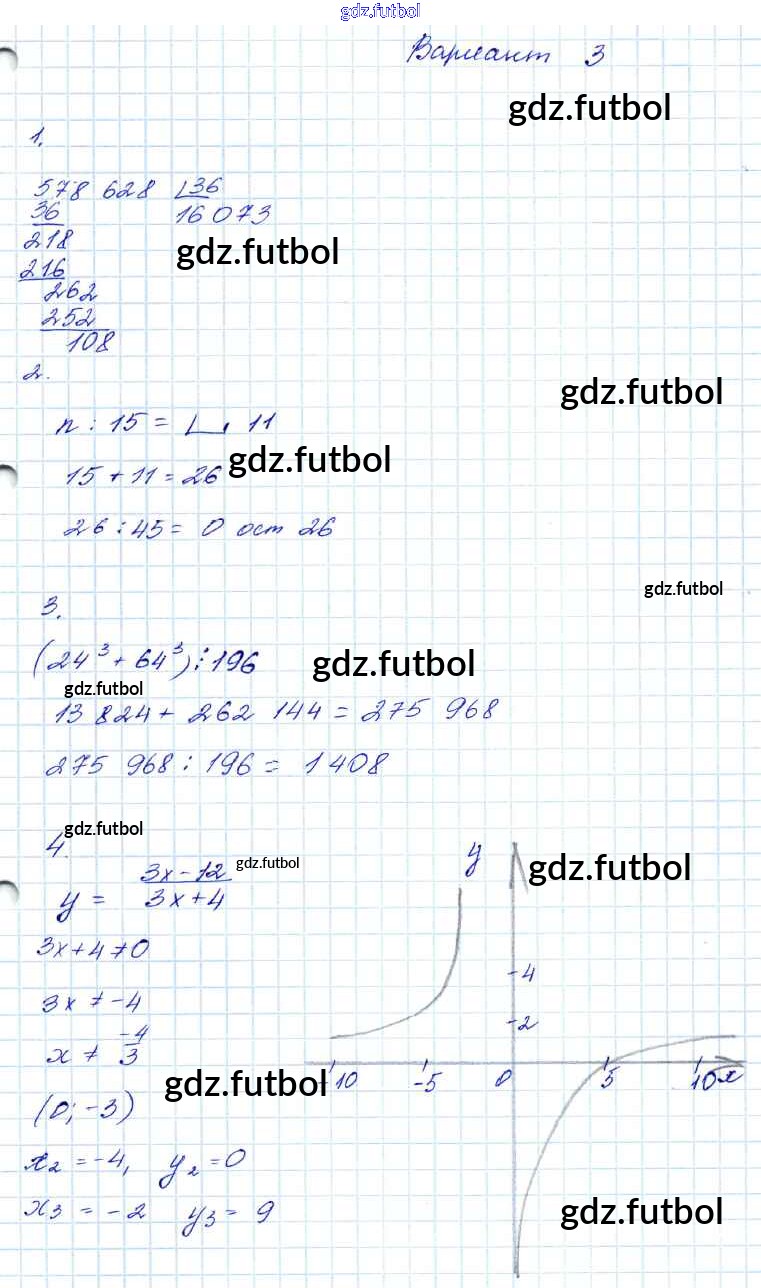 gdz.futbol
Вариант 3
gdz.futbol
1.
578 628 36
36 16 073
218
gdz.futbol
216
262
252
108
2.
gdz.futbol
n : 15 = ∟, 11
gdz.futbol
15 + 11 = 26
26 : 45 = 0 ост 26
gdz.futbol
3.
(24³ + 64³) ⋮ 196
gdz.futbol
gdz.futbol
13 824 + 262 144 = 275 968
275 968 : 196 = 1408
gdz.futbol
4.
y = (3x - 12)/(3x + 4)
gdz.futbol
3x + 4 ≠ 0
3x ≠ -4
x ≠ -4/3
gdz.futbol
(0; -3)
x₂ = -4, y₂ = 0
x₃ = -2 y₃ = 9
y
gdz.futbol
-4
-2
-10 -5 0 5 10 x
gdz.futbol